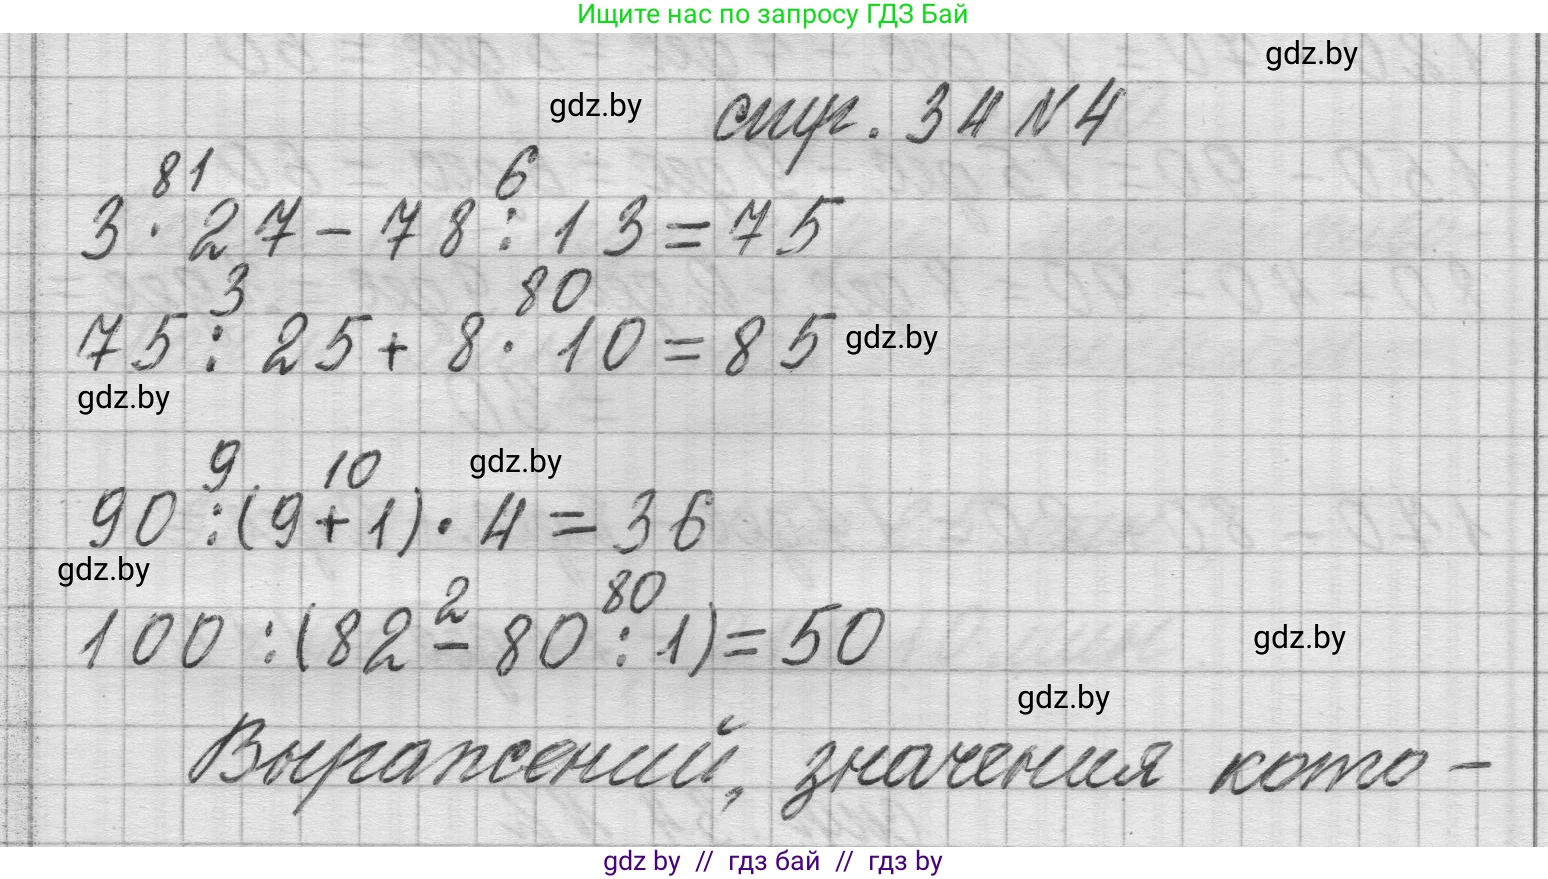 Ищите нас по запросу ГДЗ Бай
gdz.by
gdz.by стр. 34 №4
81 6
3 · 27 - 78 : 13 = 75
3 80
75 : 25 + 8 · 10 = 85 gdz.by
gdz.by
9 10 gdz.by
90 : (9 + 1) · 4 = 36
gdz.by
2 80
100 : (82 - 80 : 1) = 50
gdz.by
gdz.by
Выражений, значения кото-
gdz by // гдз бай // гдз by